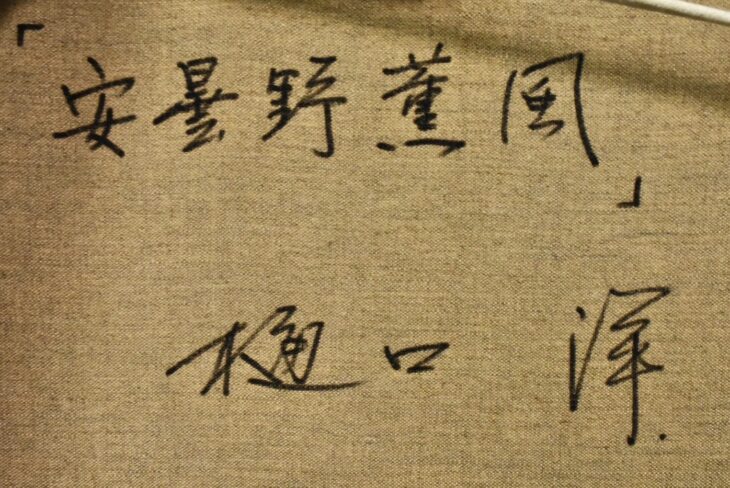 「安曇野薫風」
樋口 洋